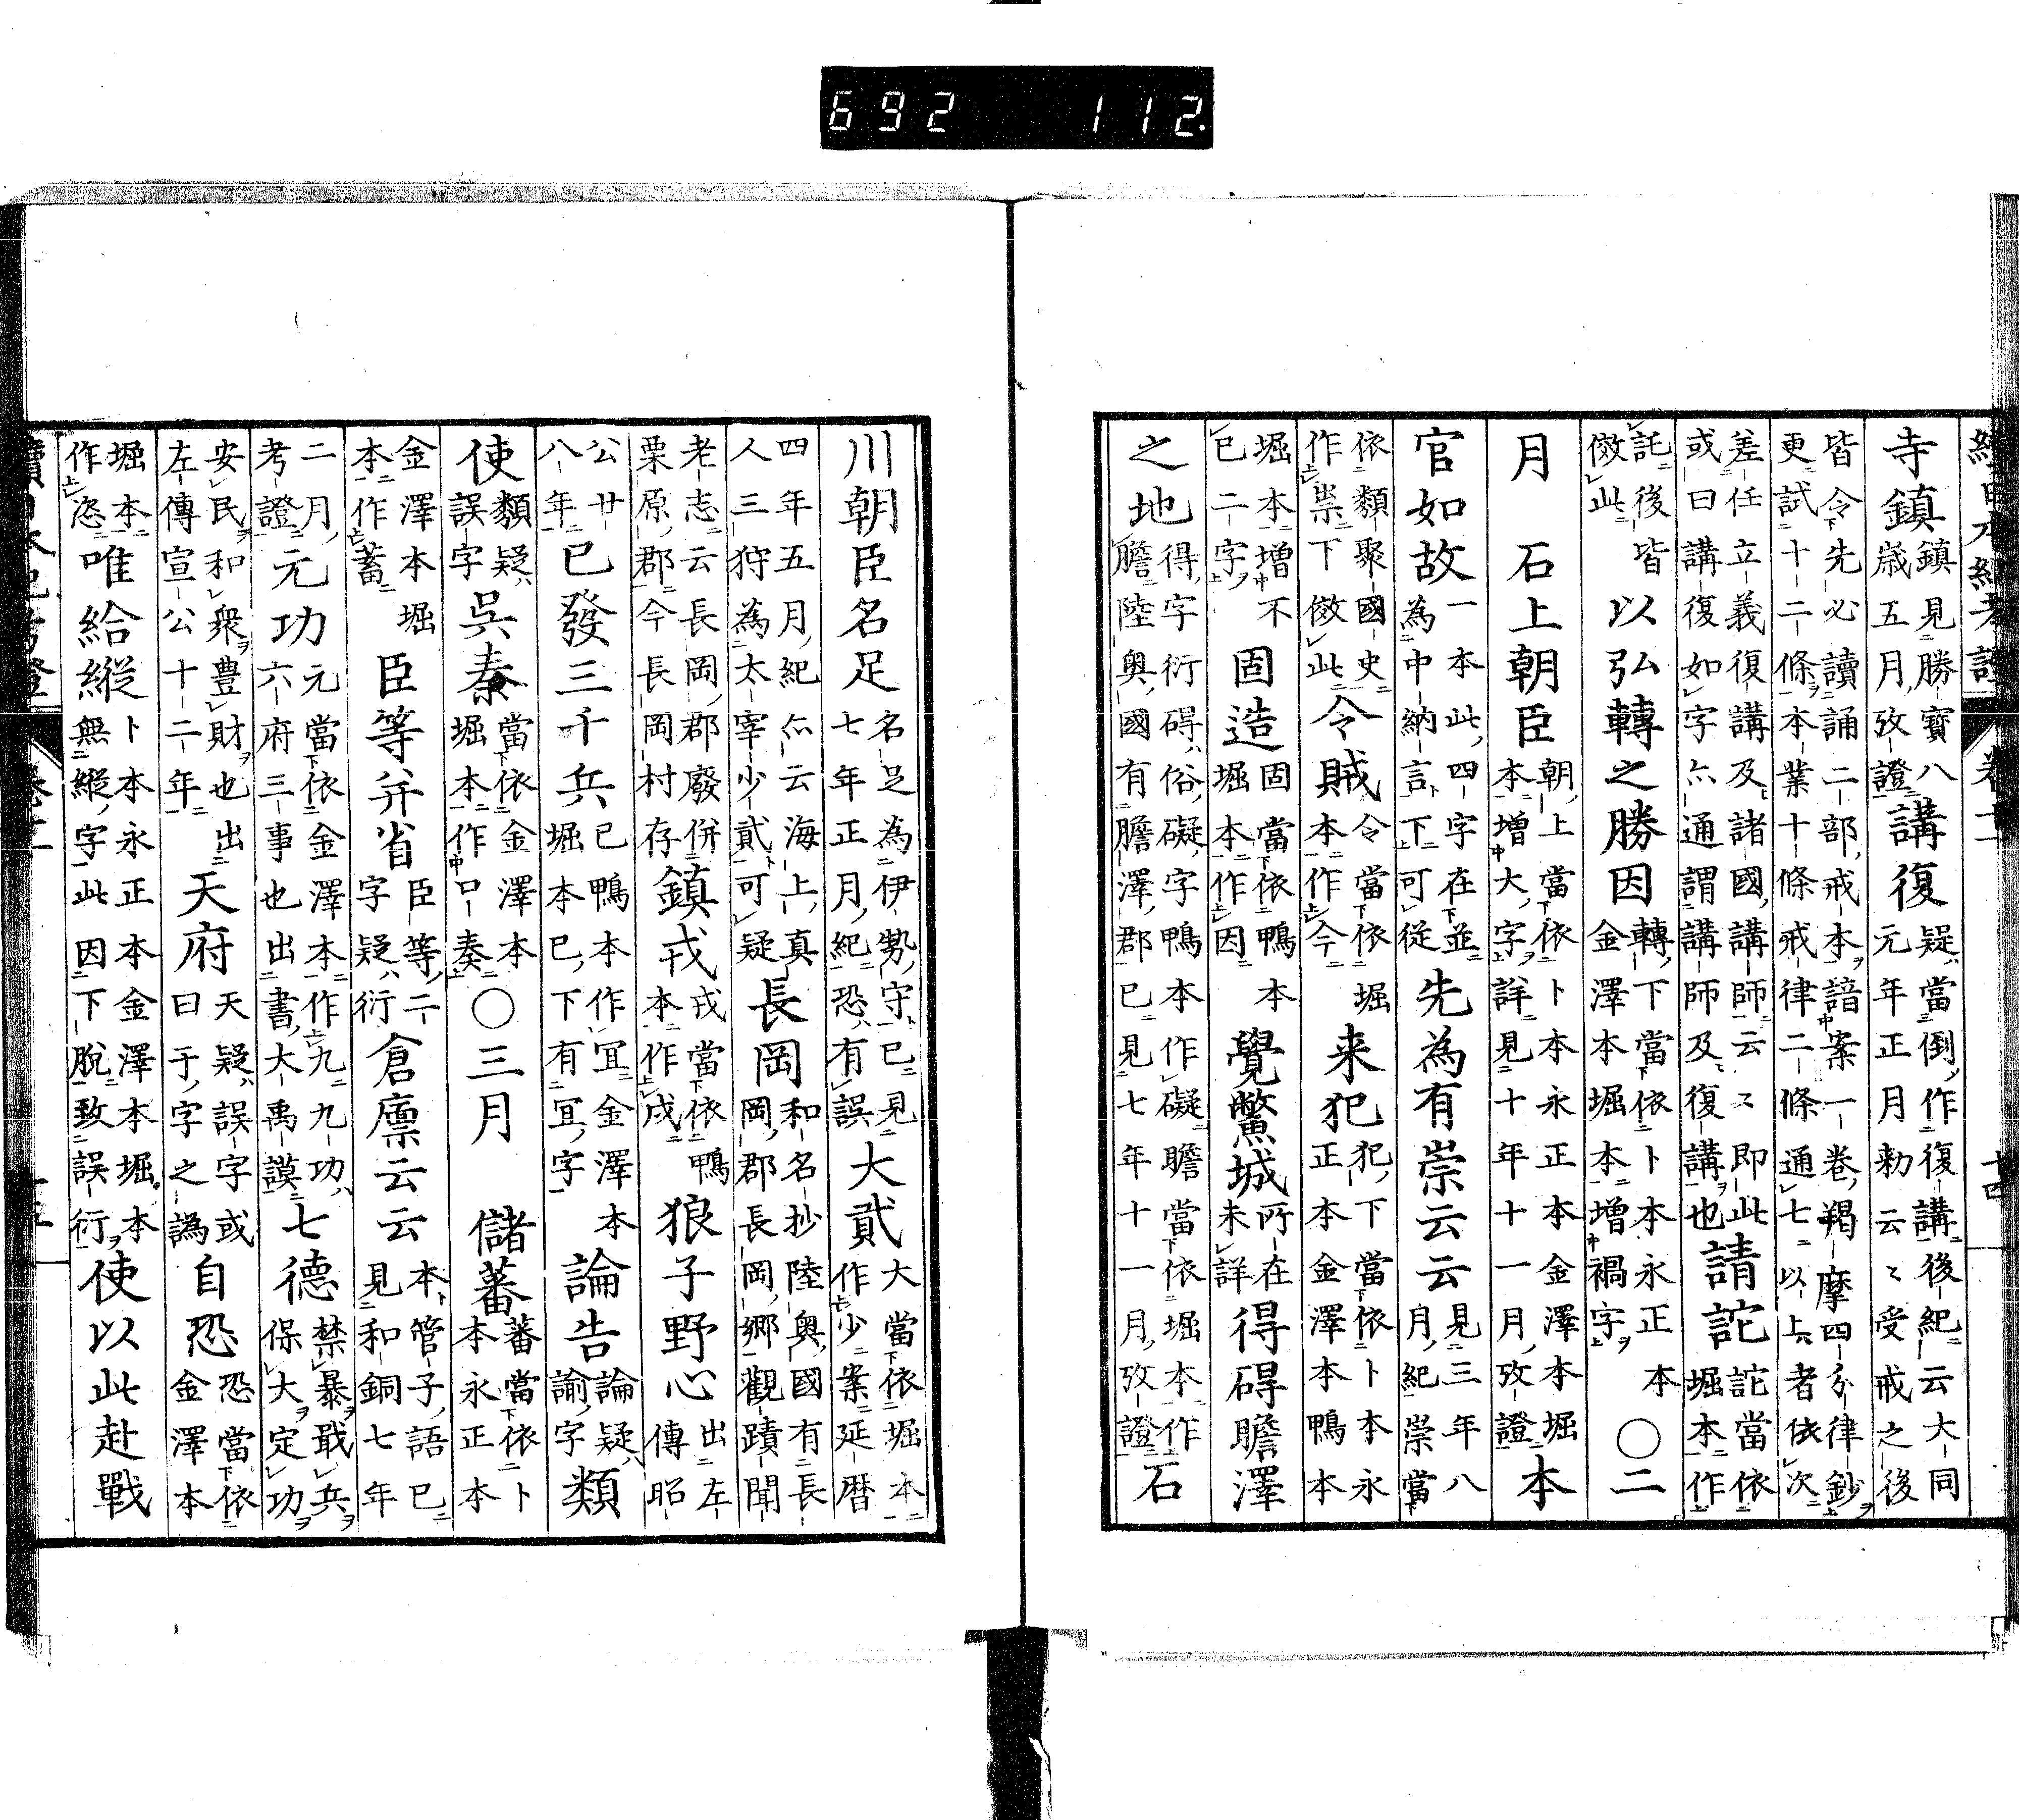 續日本紀考證 卷十一 十四
寺鎮鎮見勝寶八歳五月攷證講復疑當倒作復講後紀云大同元年正月勅云〻受戒之後
皆令先必讀誦二部戒本諳案一卷羯摩四分律鈔更試十二條本業十條戒律二條通七以上者依次
差任立義復講及諸國講師云〻即此或曰講復如字亦通謂講師及復講也請詑詑當依堀本作
託後皆傚此以弘轉之勝因轉下當依卜本永正本金澤本堀本增禍字〇二
月 石上朝臣朝上當依卜本永正本金澤本堀本增大字詳見十年十一月攷證本
官如故一本此四字在並為中納言下可從先為有崇云云見三年八月紀崇當
依類聚國史作祟下傚此令賊令當依堀本作今来犯犯下當依卜本永正本金澤本鴨本
堀本增不已二字固造固當依鴨本堀本作因覺鱉城所在未詳得碍贍澤
之地得字衍碍俗礙字鴨本作礙贍當依堀本作膽陸奥國有膽澤郡已見七年十一月攷證石
川朝臣名足名足為伊勢守已見七年正月紀恐有誤大貳大當依堀本作少案延暦
四年五月紀亦云海上真人三狩為太宰少貳可疑長岡和名抄陸奥國有長岡郡長岡郷觀蹟聞
老志云長岡郡廢併栗原郡今長岡村存鎮戎戎當依鴨本作戍狼子野心出左傳昭
公廿八年已發三千兵已鴨本作冝金澤本堀本已下有冝字論告論疑諭字類
使類疑誤字呉秦當依金澤本堀本作口奏〇三月 儲蕃蕃當依卜本永正本
金澤本堀本作蓄臣等并省臣等二字疑衍倉廪云云本管子語已見和銅七年
二月考證元功元當依金澤本作九九功六府三事也出書大禹謨七德禁暴戢兵保大定功
安民和衆豊財也出左傳宣公十二年天府天疑誤字或曰于字之譌自恐恐當依金澤本
堀本作恣唯給縦卜本永正本金澤本堀本無縦字此因下脱致誤衍使以此赴戰